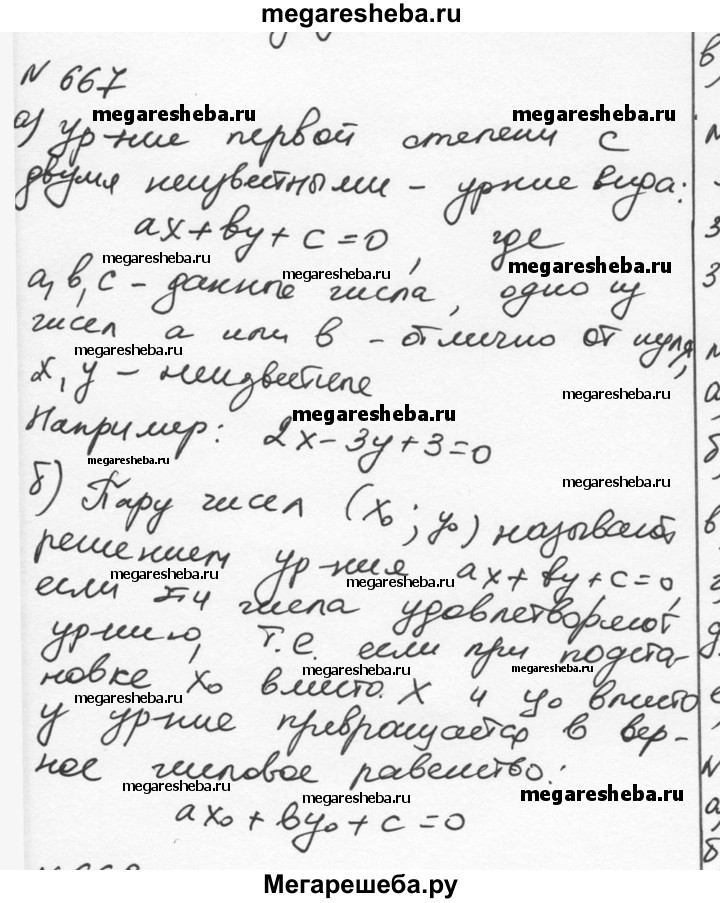 megaresheba.ru
N 667
megaresheba.ru megaresheba.ru
а) ур-ние первой степени с
двумя неизвестными – ур-ние вида:
ax+by+c=0, где
megaresheba.ru megaresheba.ru megaresheba.ru
a, b, c – данные числа, одно из
чисел a или b – отлично от нуля,
megaresheba.ru
x, y – неизвестные
megaresheba.ru
megaresheba.ru
Например: 2x-3y+3=0
megaresheba.ru
megaresheba.ru
б) Пару чисел (x₀; y₀) называют
решением ур-ния ax+by+c=0,
megaresheba.ru megaresheba.ru
если эти числа удовлетворяют
ур-нию, т.е. если при подста-
megaresheba.ru megaresheba.ru
новке x₀ вместо x и y₀ вместо
megaresheba.ru
y ур-ние превращается в вер-
megaresheba.ru
ное числовое равенство:
megaresheba.ru megaresheba.ru megaresheba.ru
ax₀+by₀+c=0
Мегарешеба.ру